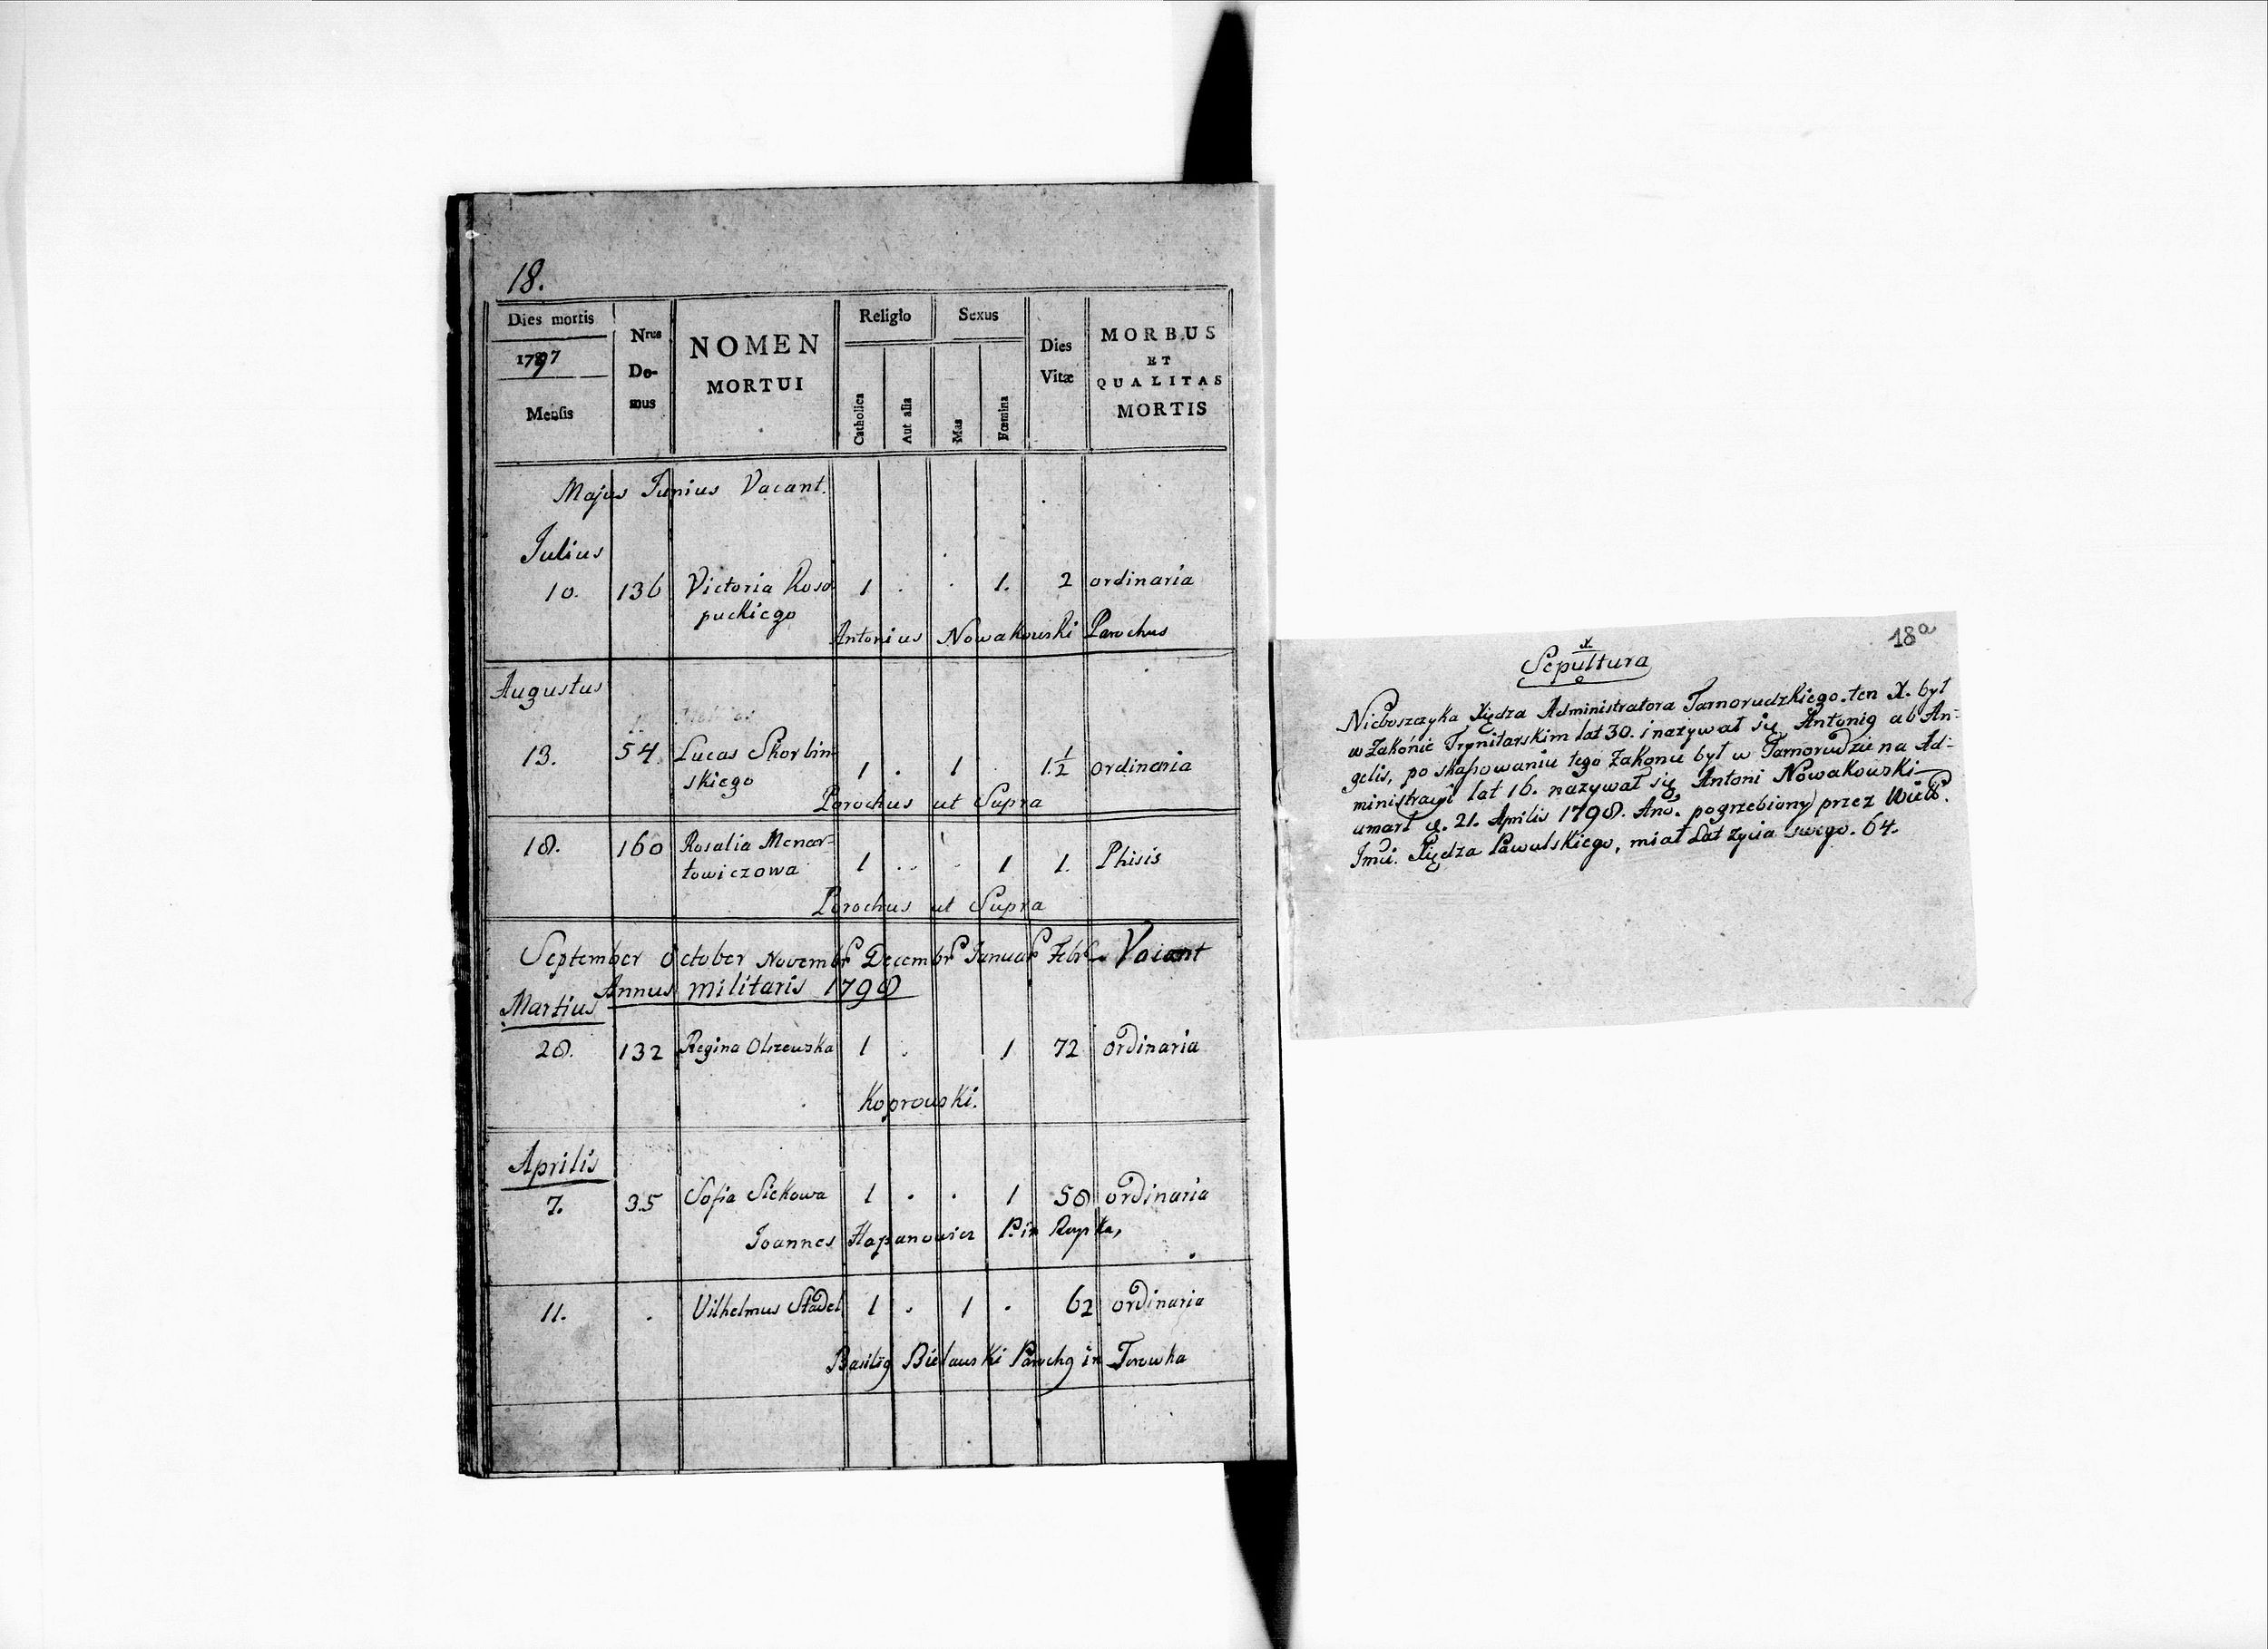 18.
Dies mortis
1797
Mensis
Nrus
Do-
mus
NOMEN
MORTUI
Religio
Catholica
Aut alia
Sexus
Mas
Fœmina
Dies
Vitæ
MORBUS
ET
QUALITAS
MORTIS
Majus Junius Vacant.
Julius
10. 136 Victoria Roso 1 . . 1. 2 ordinaria
puckiego
Antonius Nowakowski Parochus
Augustus
13. 54 Lucas Skorbin 1 . 1 1.½ ordinaria
skiego
Parochus ut Supra
18. 160 Rosalia Menar- 1 . . . 1 1. Phisis
towiczowa
Parochus ut Supra
September October Novembr Decembr Januar Febr Vacant
Annus militaris 1798
Martius
28. 132 Regina Olszewska 1 . 1 72 ordinaria
Koprowski.
Aprilis
7. 35 Sofia Sickowa 1 . . 1 58 ordinaria
Joannes Hapanowicz P. in
11. . Vilhelmus Stadel 1 . 1 . 62 ordinaria
Basilig Bielawski Parochg in Torowka
18a
x.
Sepultura
Nieboszczyka Xiędza Administratora Tarnorudzkiego. ten X. był
w Zakónie Trynitarskim lat 30. i nazywał się Antonig ab An-
gelis, po skasowaniu tego Zakonu był w Tarnorudzie na Ad-
ministracyi lat 16. nazywał się Antoni Nowakowski
umarł d. 21. Aprilis 1798. Ano. pogrzebiony przez
Xiędza Pawulskiego, miał Lat życia swego. 64.